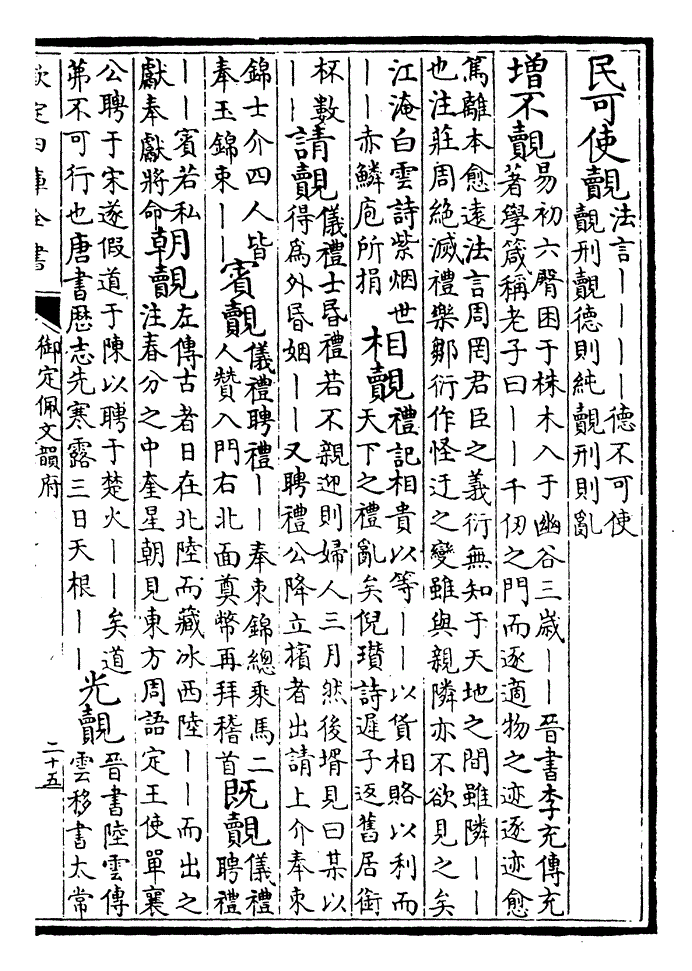 民可使覿
法言丨丨丨丨德不可使
覿刑覿德則純覿刑則亂
増不覿
易初六臀困于株木入于幽谷三歳丨丨晉書李充傳充
著學箴稱老子曰丨丨千仞之門而逐適物之迹逐迹愈
篤離本愈遠法言周罔君臣之義衍無知于天地之間雖隣丨丨
也注莊周絶滅禮樂鄒衍作怪迂之變雖與親隣亦不欲見之矣
江淹白雲詩紫烟世
丨丨赤鱗庖所捐
相覿
禮記相貴以等丨丨以貨相賂以利而
天下之禮亂矣倪瓚詩遲子返舊居銜
杯數
丨丨
請覿
儀禮士昏禮若不親迎則婦人三月然後壻見曰某以
得為外昏姻丨丨又聘禮公降立擯者出請上介奉束
錦士介四人皆
奉玉錦束丨丨
賓覿
儀禮聘禮丨丨奉束錦總乗馬二
人贊入門右北面奠幣再拜稽首
既覿
儀禮
聘禮
丨丨賓若私
獻奉獻將命
朝覿
左傳古者日在北陸而藏冰西陸丨丨而出之
注春分之中奎星朝見東方周語定王使單襄
公聘于宋遂假道于陳以聘于楚火丨丨矣道
茀不可行也唐書厯志先寒露三日天根丨丨
光覿
晉書陸雲傳
雲移書太常
欽定四庫全書
御定佩文韻府
二十五